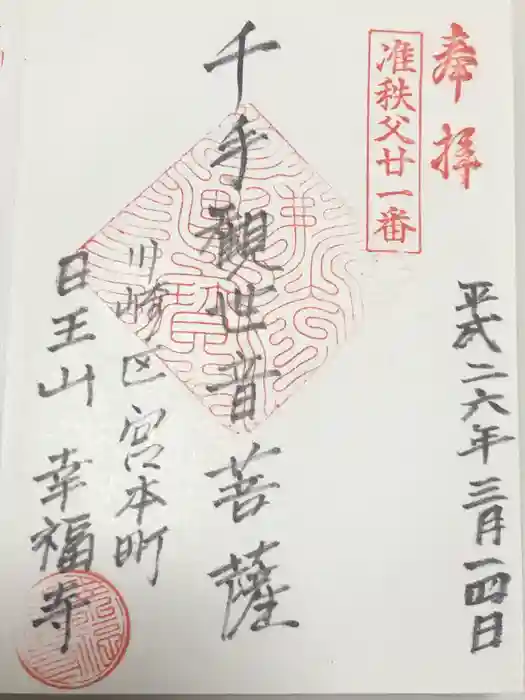 奉拝
准秩父廿一番
平成二六年三月一四日
千手観世音菩薩
川崎区宮本町
日王山 幸福寺